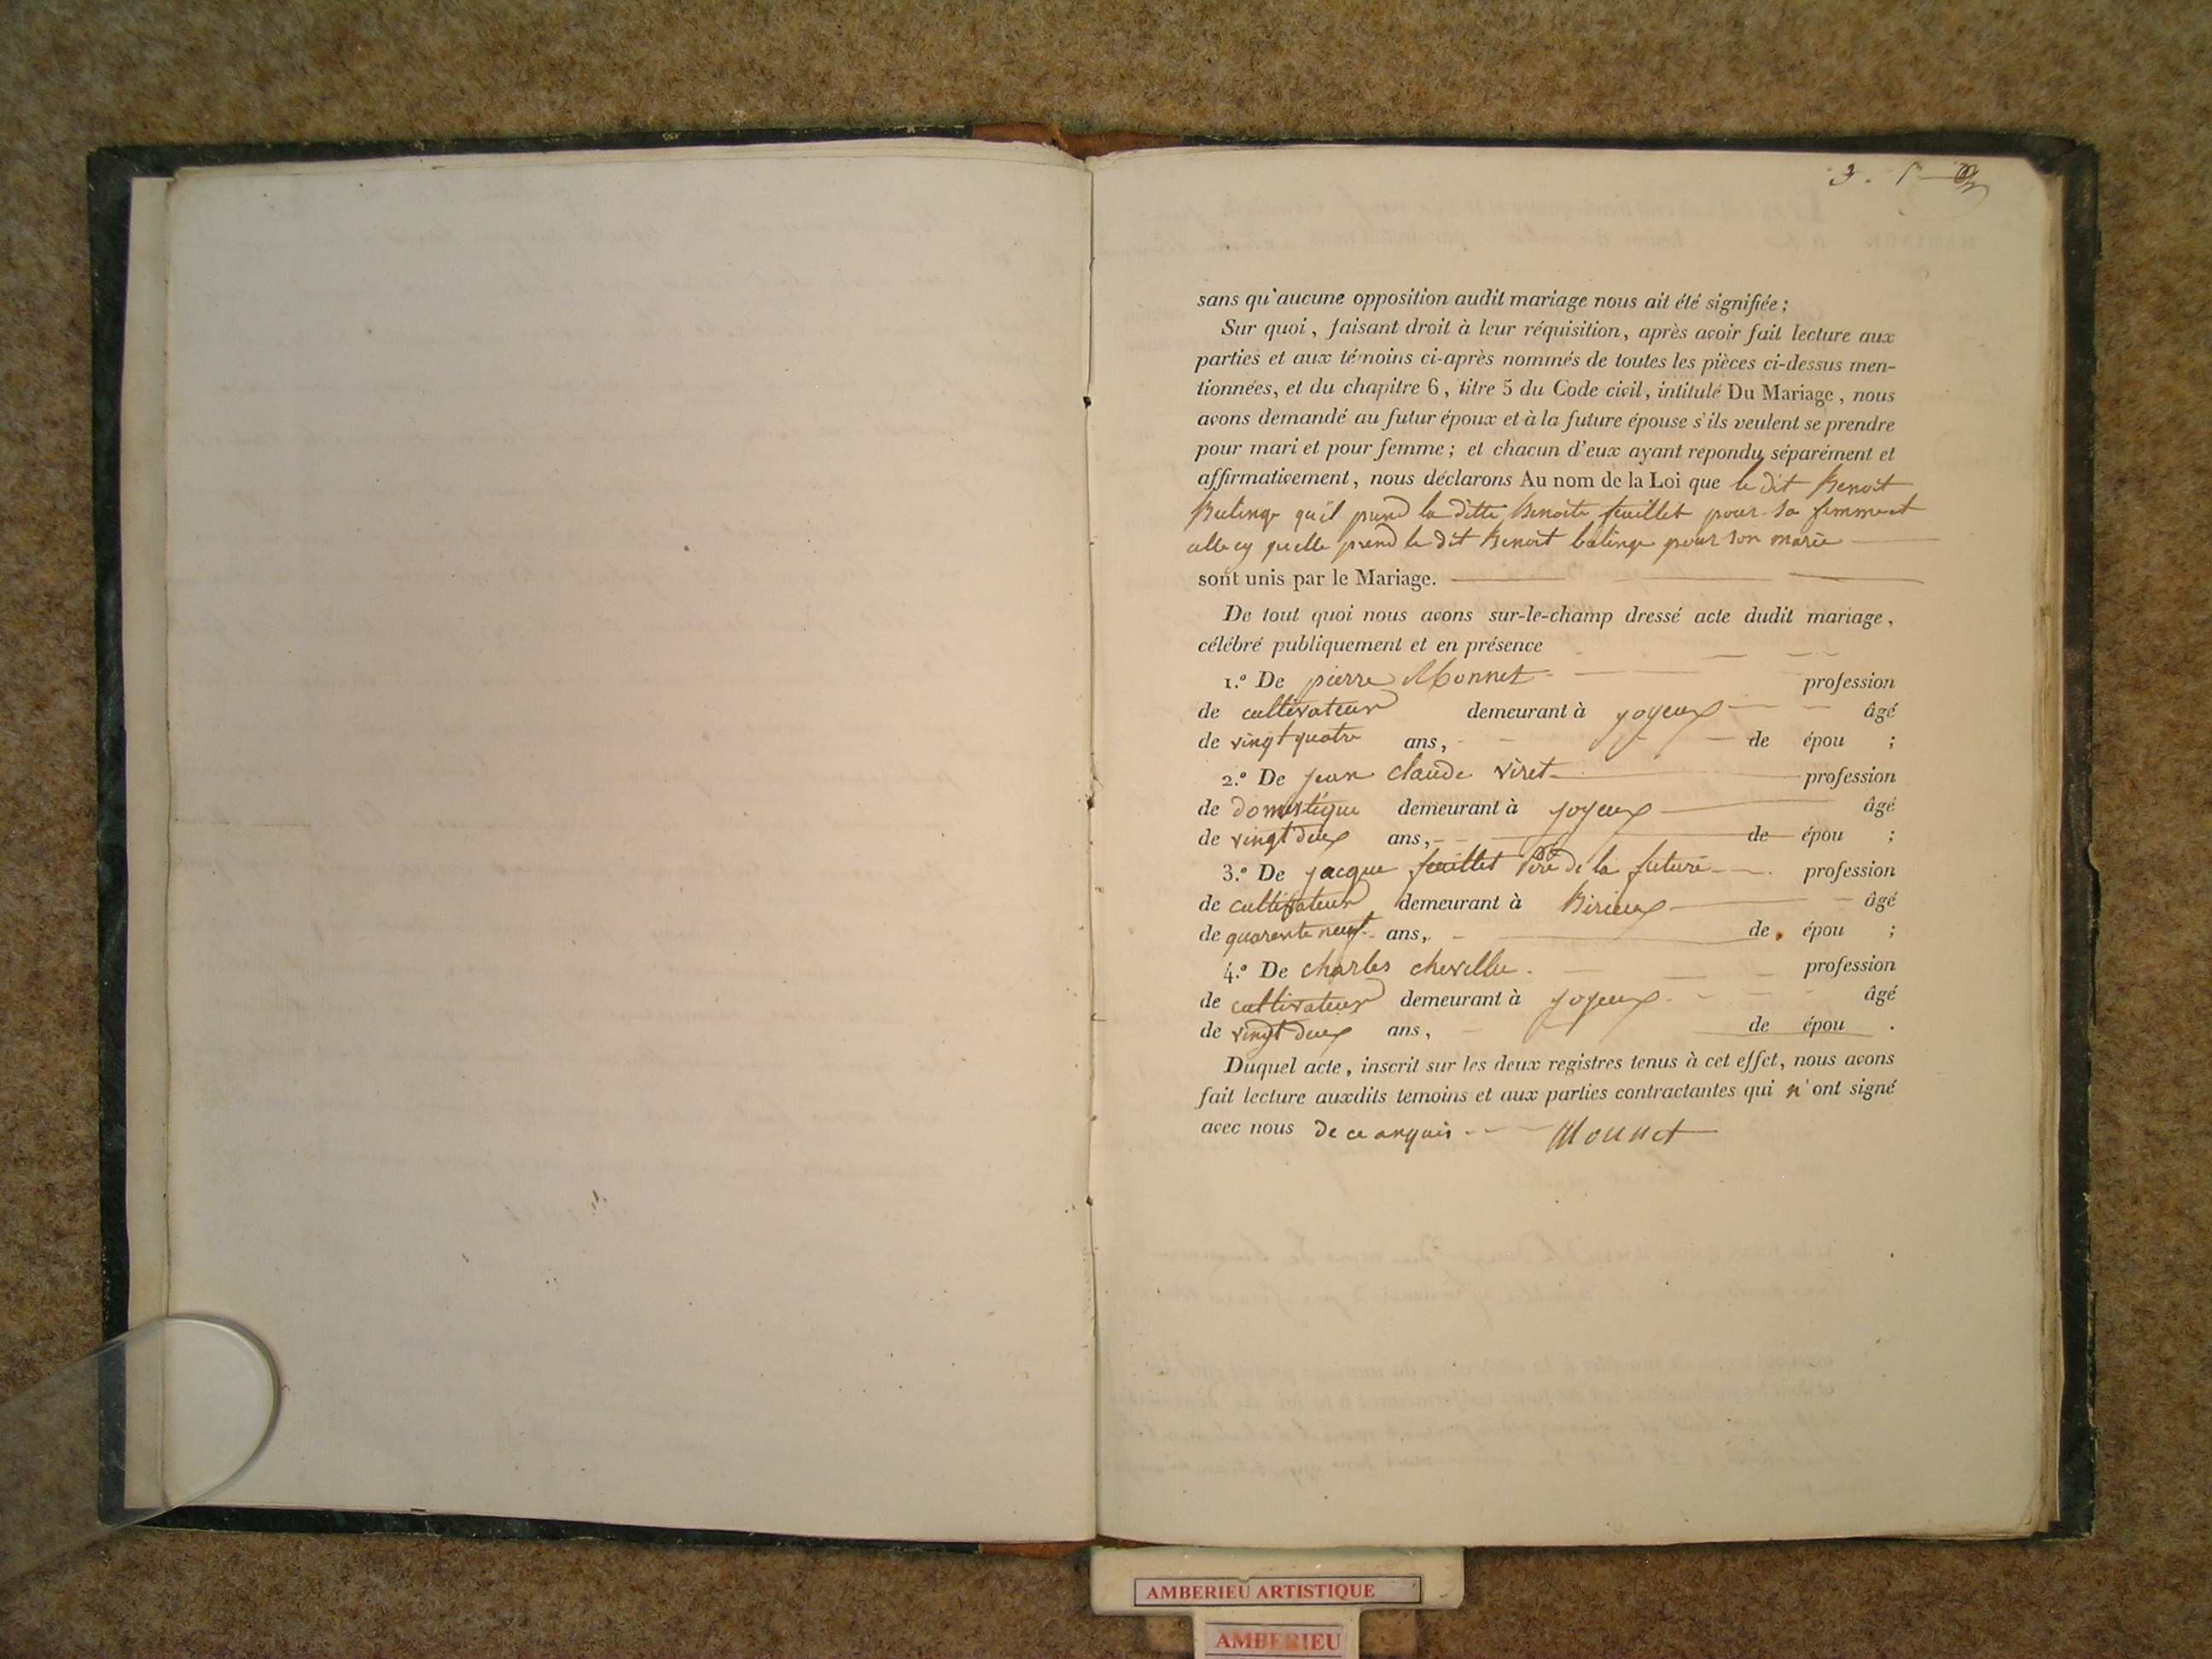 sans qu'aucune opposition audit mariage nous ait été signifiée ;
Sur quoi, faisant droit à leur réquisition, après avoir fait lecture aux
parties et aux témoins ci-après nommés de toutes les pièces ci-dessus men-
tionnées, et du chapitre 6, titre 5 du Code civil, intitulé Du Mariage, nous
avons demandé au futur époux et à la future épouse s'ils veulent se prendre
pour mari et pour femme ; et chacun d'eux ayant repondu séparément et
affirmativement, nous déclarons Au nom de la Loi que le dit Benoit
qu'il prend la ditte Benoite feuillet pour sa femme et
celle cy quelle prend le dit Benoit balinge pour son marie
sont unis par le Mariage.
De tout quoi nous avons sur-le-champ dressé acte dudit mariage,
célébré publiquement et en présence
1.º De pierre Monnet profession
de cultivateur demeurant à joyeux âgé
de vingt quatre ans, de épou ;
2.º De jean claude viret profession
de domestique demeurant à joyeux âgé
de vingt deux ans, de épou ;
3.º De jacque feuillet Père de la future profession
de cultivateur demeurant à Birieux âgé
de quarente neuf ans, de épou ;
4.º De charles chevellu profession
de cultivateur demeurant à joyeux âgé
de vingt deux ans, de épou .
Duquel acte, inscrit sur les deux registres tenus à cet effet, nous avons
fait lecture auxdits temoins et aux parties contractantes qui n'ont signé
avec nous de ce anquis Monnet
AMBERIEU ARTISTIQUE
AMBERIEU